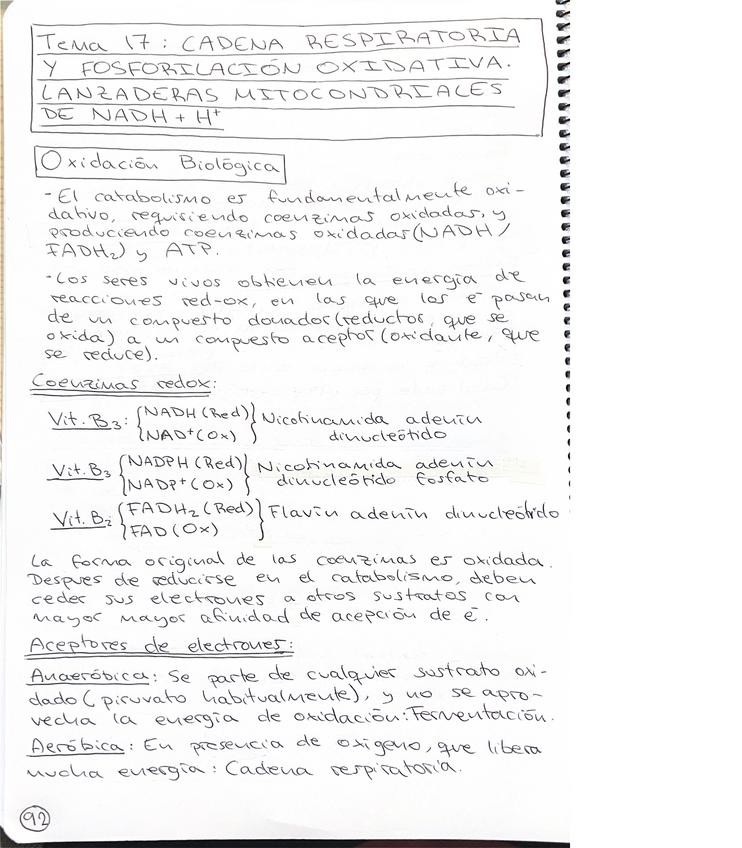 Tema 17: CADENA RESPIRATORIA
Y FOSFORILACIÓN OXIDATIVA.
LANZADERAS MITOCONDRIALES
DE NADH + H⁺
Oxidación Biológica
- El catabolismo es fundamentalmente oxi-
dativo, requisiendo coenzimas oxidadas, y
produciendo coenzimas oxidadas (NADH/
FADH₂) y ATP.
- Los seres vivos obtienen la energía de
reacciones red-ox, en las que los e⁻ pasan
de un compuesto donador (reductos, que se
oxida) a un compuesto aceptor (oxidante, que
se reduce).
Coenzimas redox:
Vit. B₃: { NADH (Red) } Nicotinamida adenín
{ NAD⁺ (Ox) } dinucleótido
Vit. B₃ { NADPH (Red) } Nicotinamida adenín
{ NADP⁺ (Ox) } dinucleótido fosfato
Vit. B₂ { FADH₂ (Red) } Flavín adenín dinucleótido
{ FAD (Ox) }
La forma original de las coenzimas es oxidada.
Despues de reducirse en el catabolismo, deben
ceder sus electrones a otros sustratos con
mayor mayor afinidad de acepción de e⁻.
Aceptores de electrones:
Anaeróbica: Se parte de cualquier sustrato oxi-
dado (piruvato habitualmente), y no se apro-
vecha la energía de oxidación: Fermentación.
Aeróbica: En presencia de oxígeno, que libera
mucha energía: Cadena respiratoria.
92